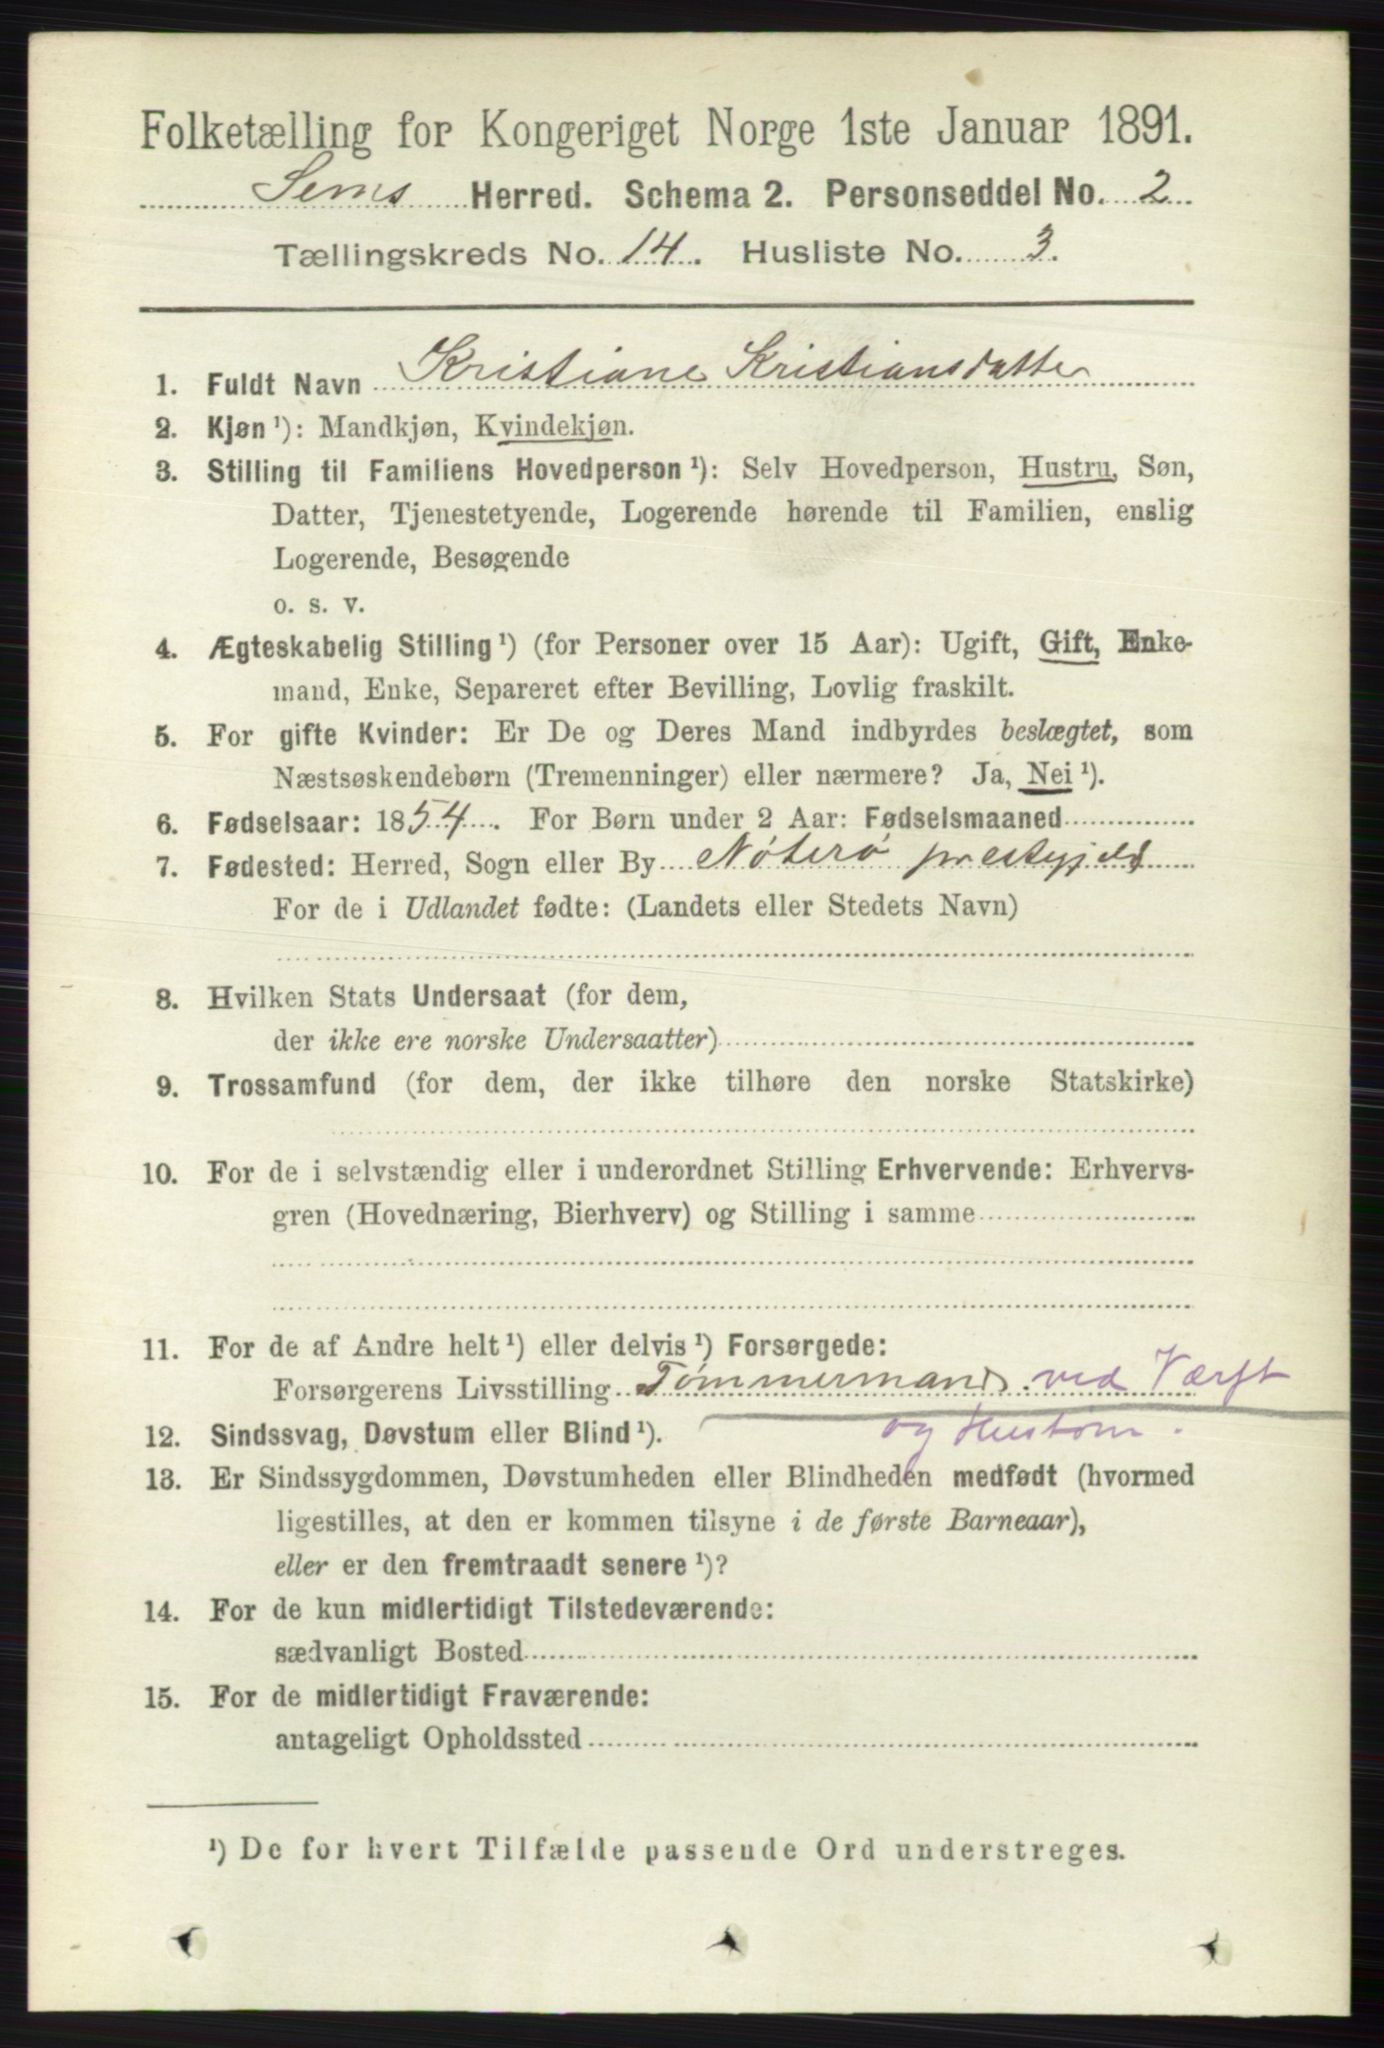 Folketælling for Kongeriget Norge 1ste Januar 1891.
Sems Herred. Schema 2. Personseddel No. 2
Tællingskreds No. 14. Husliste No. 3.
1. Fuldt Navn Kristiane Kristiansdatter
2. Kjøn ¹): Mandkjøn, Kvindekjøn.
3. Stilling til Familiens Hovedperson ¹): Selv Hovedperson, Hustru, Søn,
Datter, Tjenestetyende, Logerende hørende til Familien, enslig
Logerende, Besøgende
o. s. v.
4. Ægteskabelig Stilling ¹) (for Personer over 15 Aar): Ugift, Gift, Enke-
mand, Enke, Separeret efter Bevilling, Lovlig fraskilt.
5. For gifte Kvinder: Er De og Deres Mand indbyrdes beslægtet, som
Næstsøskendebørn (Tremenninger) eller nærmere? Ja, Nei ¹).
6. Fødselsaar: 1854. For Børn under 2 Aar: Fødselsmaaned
7. Fødested: Herred, Sogn eller By Nøterø prestegjeld
For de i Udlandet fødte: (Landets eller Stedets Navn)
8. Hvilken Stats Undersaat (for dem,
der ikke ere norske Undersaatter)
9. Trossamfund (for dem, der ikke tilhøre den norske Statskirke)
10. For de i selvstændig eller i underordnet Stilling Erhvervende: Erhvervs-
gren (Hovednæring, Bierhverv) og Stilling i samme
11. For de af Andre helt ¹) eller delvis ¹) Forsørgede:
Forsørgerens Livsstilling Tømmermand ved Værft
og
12. Sindssvag, Døvstum eller Blind ¹).
13. Er Sindssygdommen, Døvstumheden eller Blindheden medfødt (hvormed
ligestilles, at den er kommen tilsyne i de første Barneaar),
eller er den fremtraadt senere ¹)?
14. For de kun midlertidigt Tilstedeværende:
sædvanligt Bosted
15. For de midlertidigt Fraværende:
antageligt Opholdssted
¹) De for hvert Tilfælde passende Ord understreges.